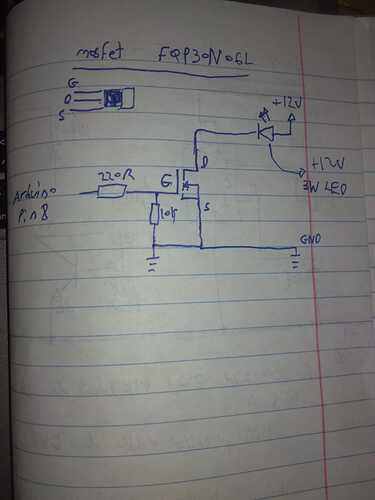 mosfet FQP30N06L
G
D
S
+12V
D
220R
G
+12V
3W LED
Arduino
Pin 8
10k
S
GND